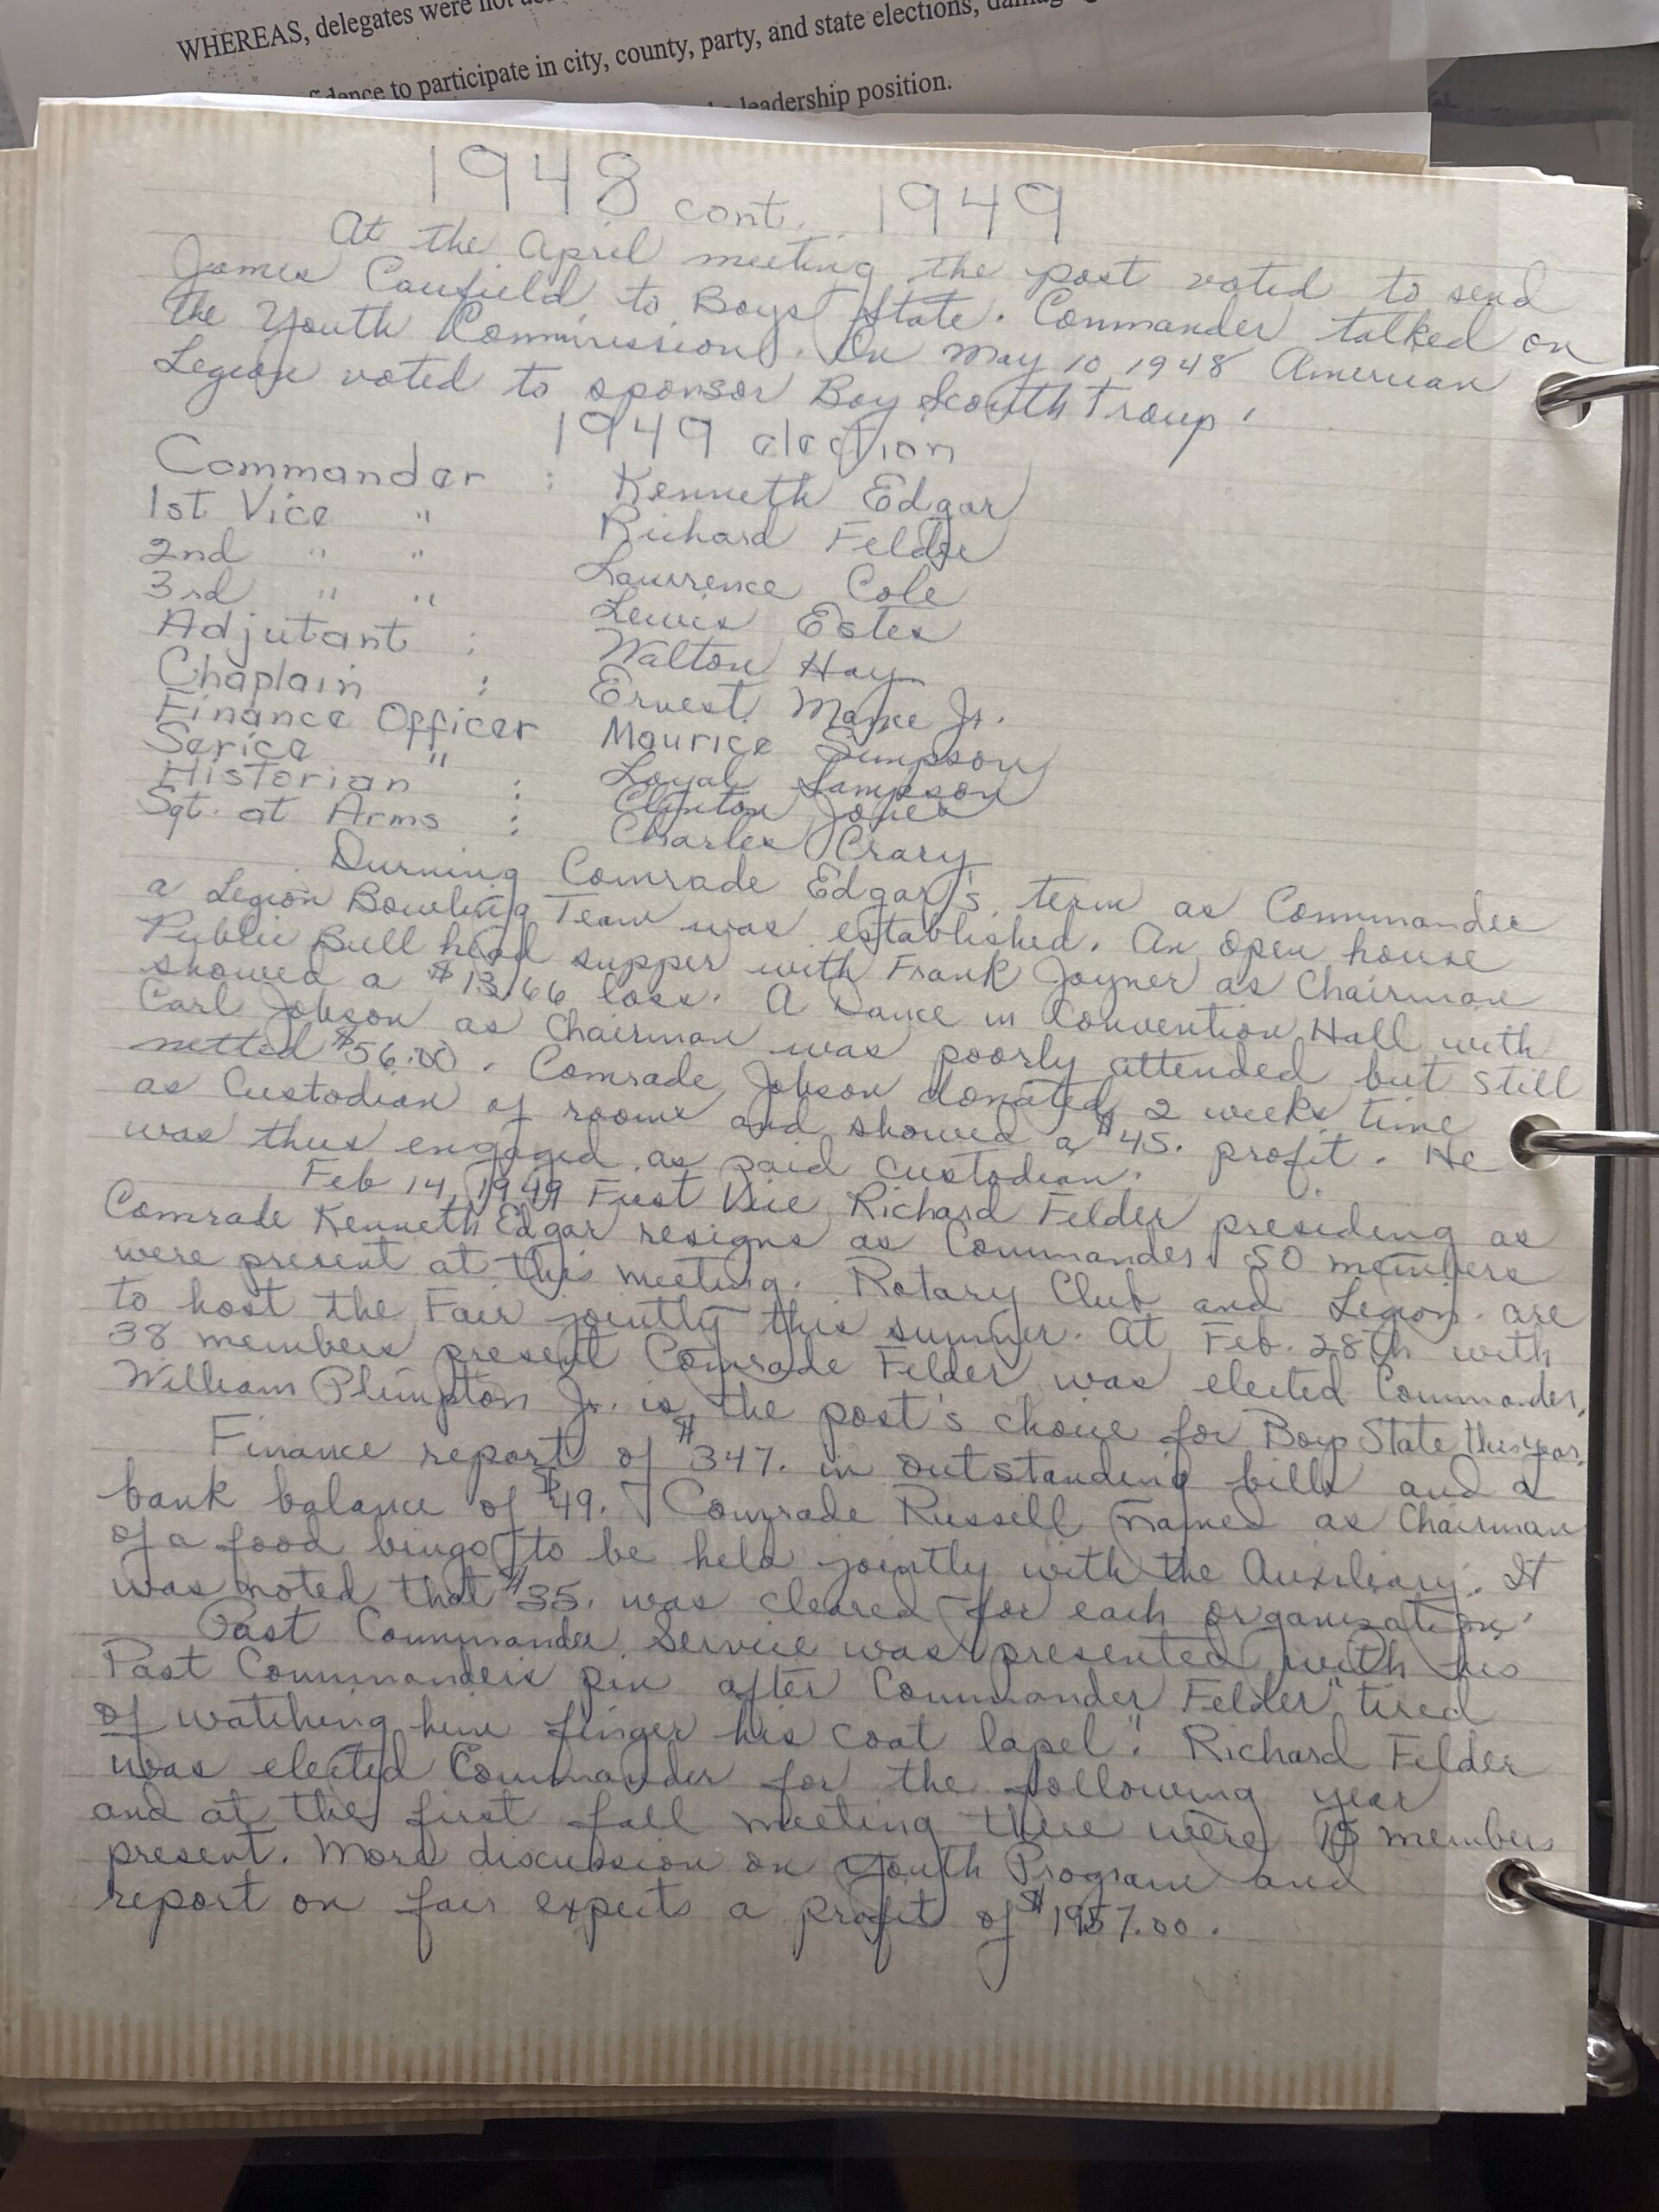 WHEREAS, delegates were not
to participate in city, county, party, and state elections,
leadership position.
1948 cont. 1949
At the April meeting the post voted to send
James Caufield to Boys State. Commander talked on
the Youth Commission. On May 10, 1948 American
Legion voted to sponsor Boy Scouth Troup.
1949 election
Commander : Kenneth Edgar
1st Vice " Richard Felder
2nd " " Lawrence Cole
3rd " " Lewis Estes
Adjutant : Walton Hay
Chaplain : Ernest Manke Jr.
Finance Officer Maurice Simpson
Serice " Loyal Sampson
Historian : Clinton Jones
Sgt. at Arms : Charles Crary
Durning Comrade Edgar's term as Commander
a Legion Bowling Team was established. An open house
Public Bull head supper with Frank Joyner as Chairman
showed a $13.66 loss. A Dance in Convention Hall with
Carl Jobson as Chairman was poorly attended but still
netted $56.00. Comrade Jobson donated 2 weeks time
as Custodian of rooms and showed a $45. profit. He
was thus engaged as paid custodian.
Feb 14, 1949 First Vice Richard Felder presiding as
Comrade Kenneth Edgar resigns as Commander. 50 members
were present at this meeting. Rotary Club and Legion are
to host the Fair jointly this summer. At Feb. 28th with
38 members present Comrade Felder was elected Commander.
William Plimpton Jr. is the post's choice for Boys State this year.
Finance report of $347. in outstanding bills and a
bank balance of $49. Comrade Russell named as Chairman
of a food bingo to be held jointly with the Auxiliary. It
was noted that $35. was cleared for each organization.
Past Commander Service was presented with his
Past Commanders pin after Commander Felder "tired
of watching him finger his coat lapel". Richard Felder
was elected Commander for the following year
and at the first fall meeting there were 15 members
present. More discussion on Youth Program and
report on fair expects a profit of $1957.00.